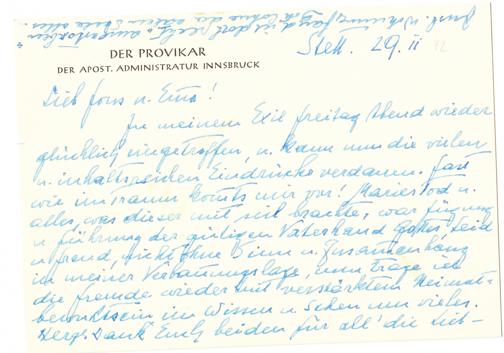 DER PROVIKAR
DER APOST. ADMINISTRATUR INNSBRUCK
Stett. 29. II
Lieb Fons u. Erna!
In meinem Exil Freitag Abend wieder
glücklich eingetroffen, u. kann nun die vielen
u. inhaltsreichen Eindrücke verdauen. Fast
wie im Traum kommts mir vor! Maries Tod u.
alles, was dieser mit sich brachte, war Fügung
u. Führung der gütigen Vaterhand Gottes. Leid
u. Freud, nicht ohne Sinn u. Zusammenhang
in meiner Verbannungslage, nun trage ich
die Fremde wieder mit verstärktem Heimat-
bewusstsein im Wissen u. Sehen um vieles.
Herzl. Dank Euch beiden für all' die Lieb-